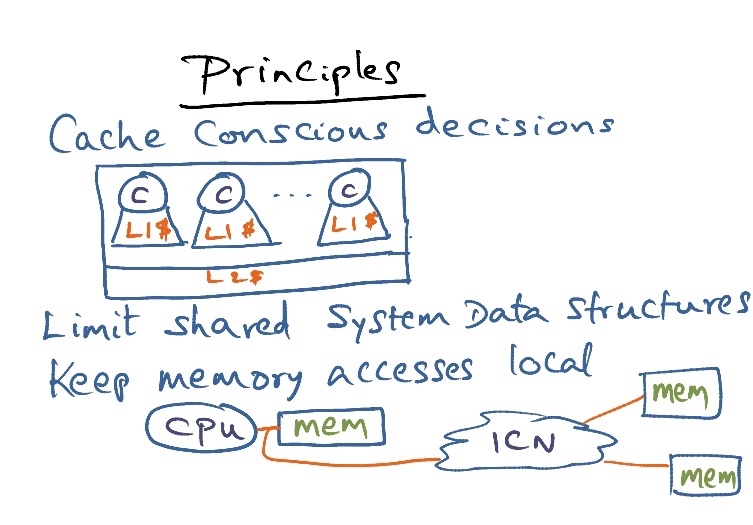 Principles
Cache Conscious decisions
C C ... C
L1$ L1$ L1$
L2$
Limit shared System Data structures
Keep memory accesses local
mem
CPU mem ICN
mem